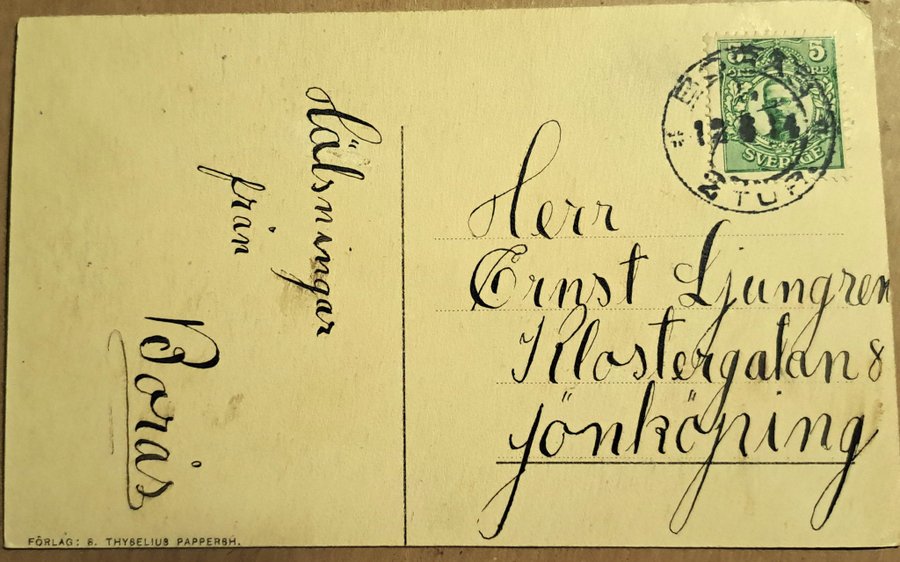 Hälsningar
från
Borås
FÖRLAG: S. THYSELIUS PAPPERSH.
5
ÖRE
SVERIGE
BORÅS
12 8 14
2 TUR
Herr
Ernst Ljungren
Klostergatan 8
Jönköping